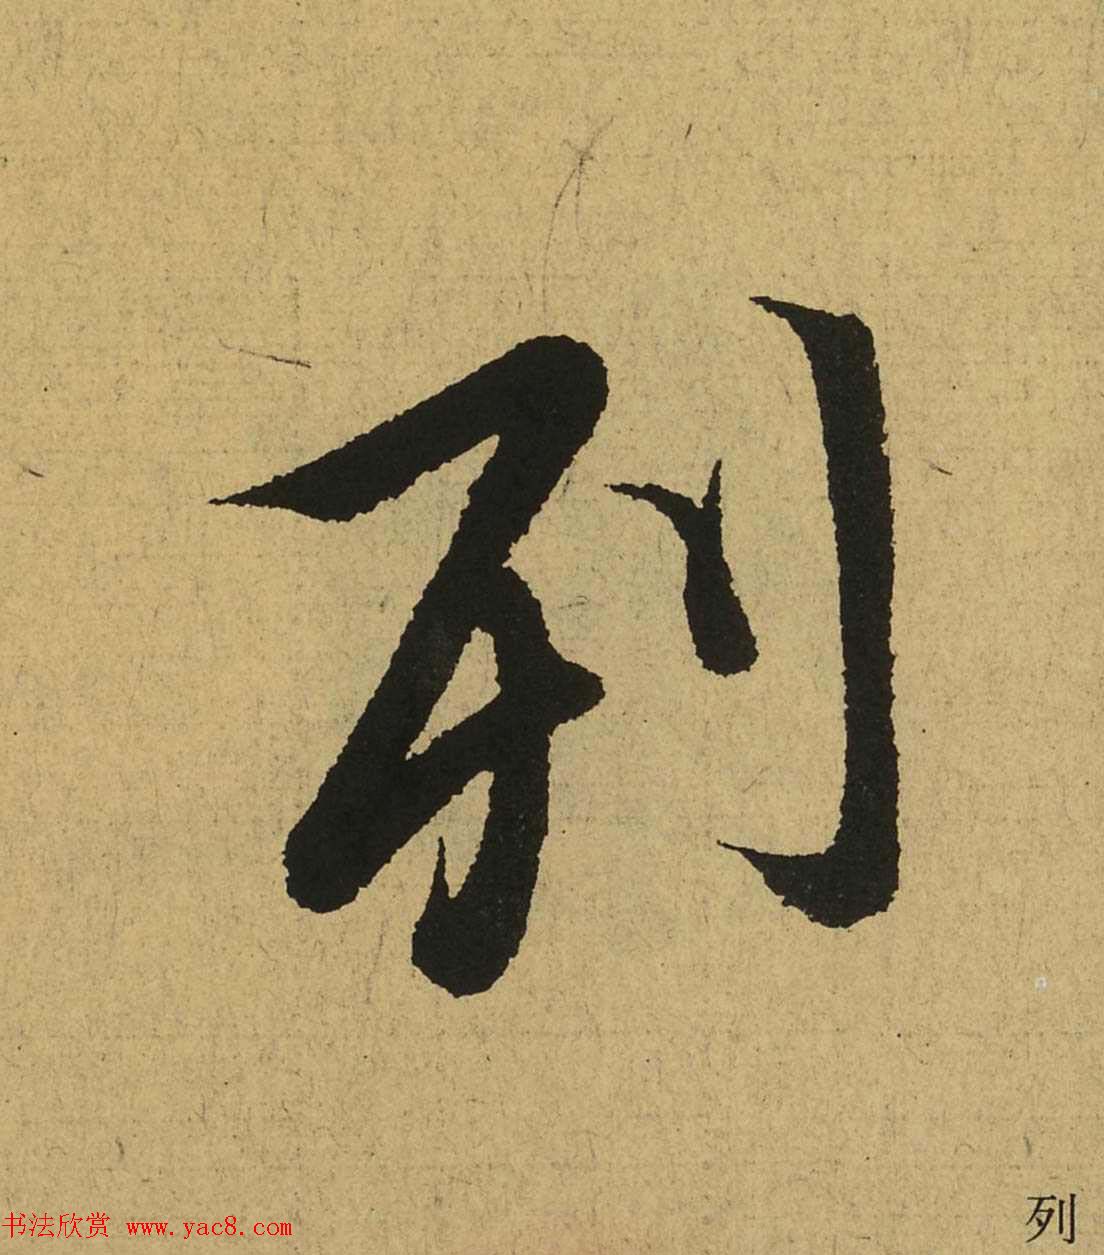 列
列
书法欣赏 www.yac8.com